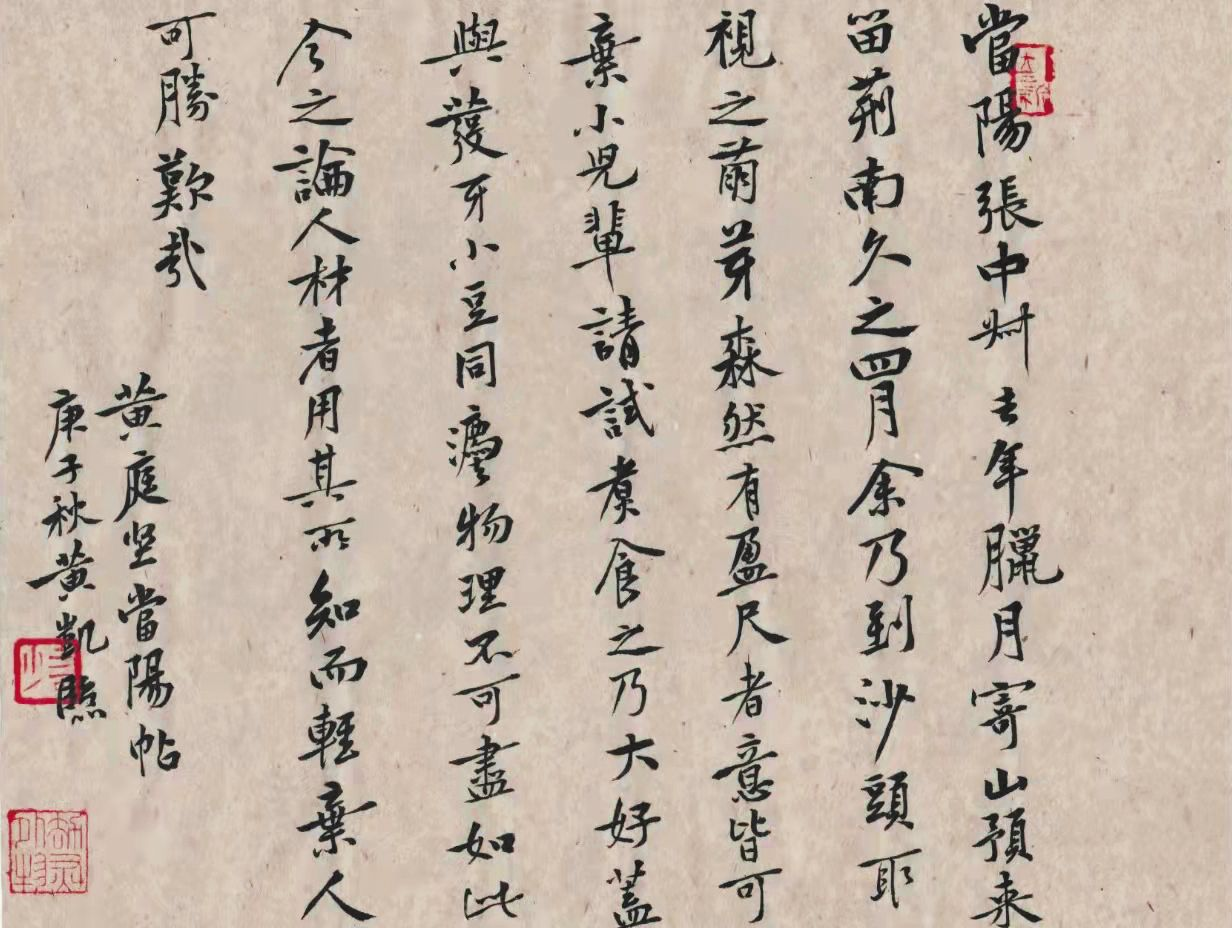 當陽張中叔去年臘月寄山預来
留荊南久之四月余乃到沙頭取
視之萠芽森然有盈尺者意皆可
棄小児輩請試煮食之乃大好蓋
與發牙小豆同瀀物理不可盡如此
今之論人材者用其所知而輕棄人
可勝歎哉
黄庭坚當陽帖
庚子秋黄凱臨